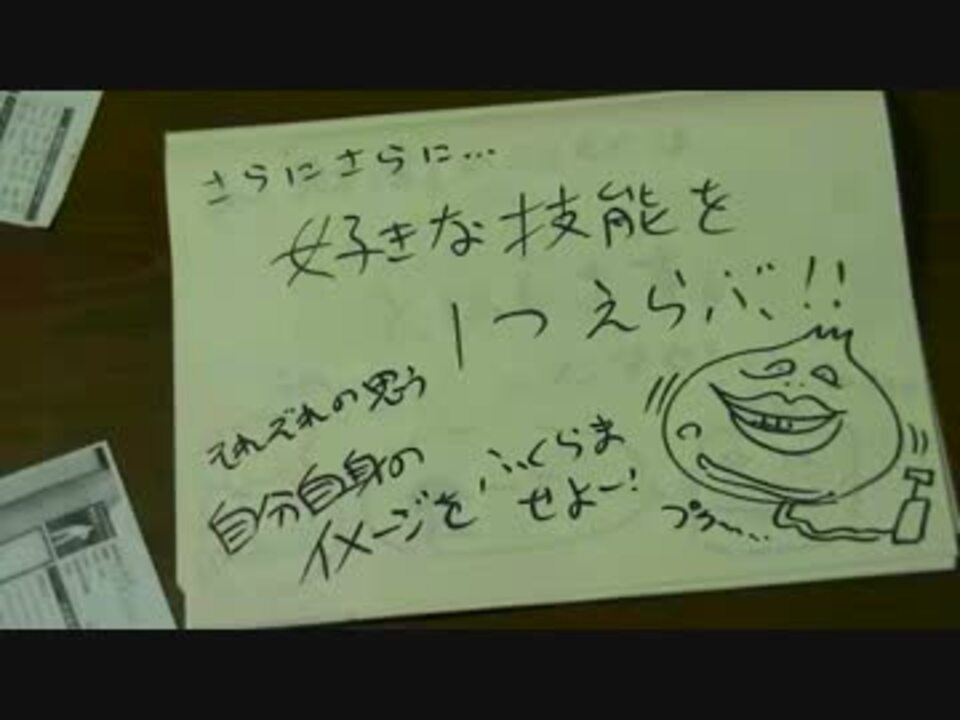 さらにさらに…
好きな技能を
1つえらぶ!!
それぞれの思う
自分自身の
イメージをふくらま
せよー!
プゥ〜…